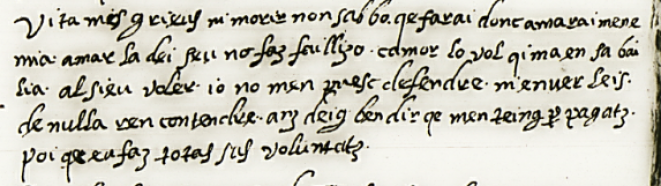 Vita mes griers ni morir non sai bo. qe farai donc amarai mene
mia. amar la dei s'eu no faz feullizo. camor lo vol qi ma en sa bai
lia. al sieu voler. io no men puesc defendre. men ver leis.
de nulla ren contendre. arz deig ben dir qe men teing per pagatz.
poi qe eu faz totas sas voluntatz.